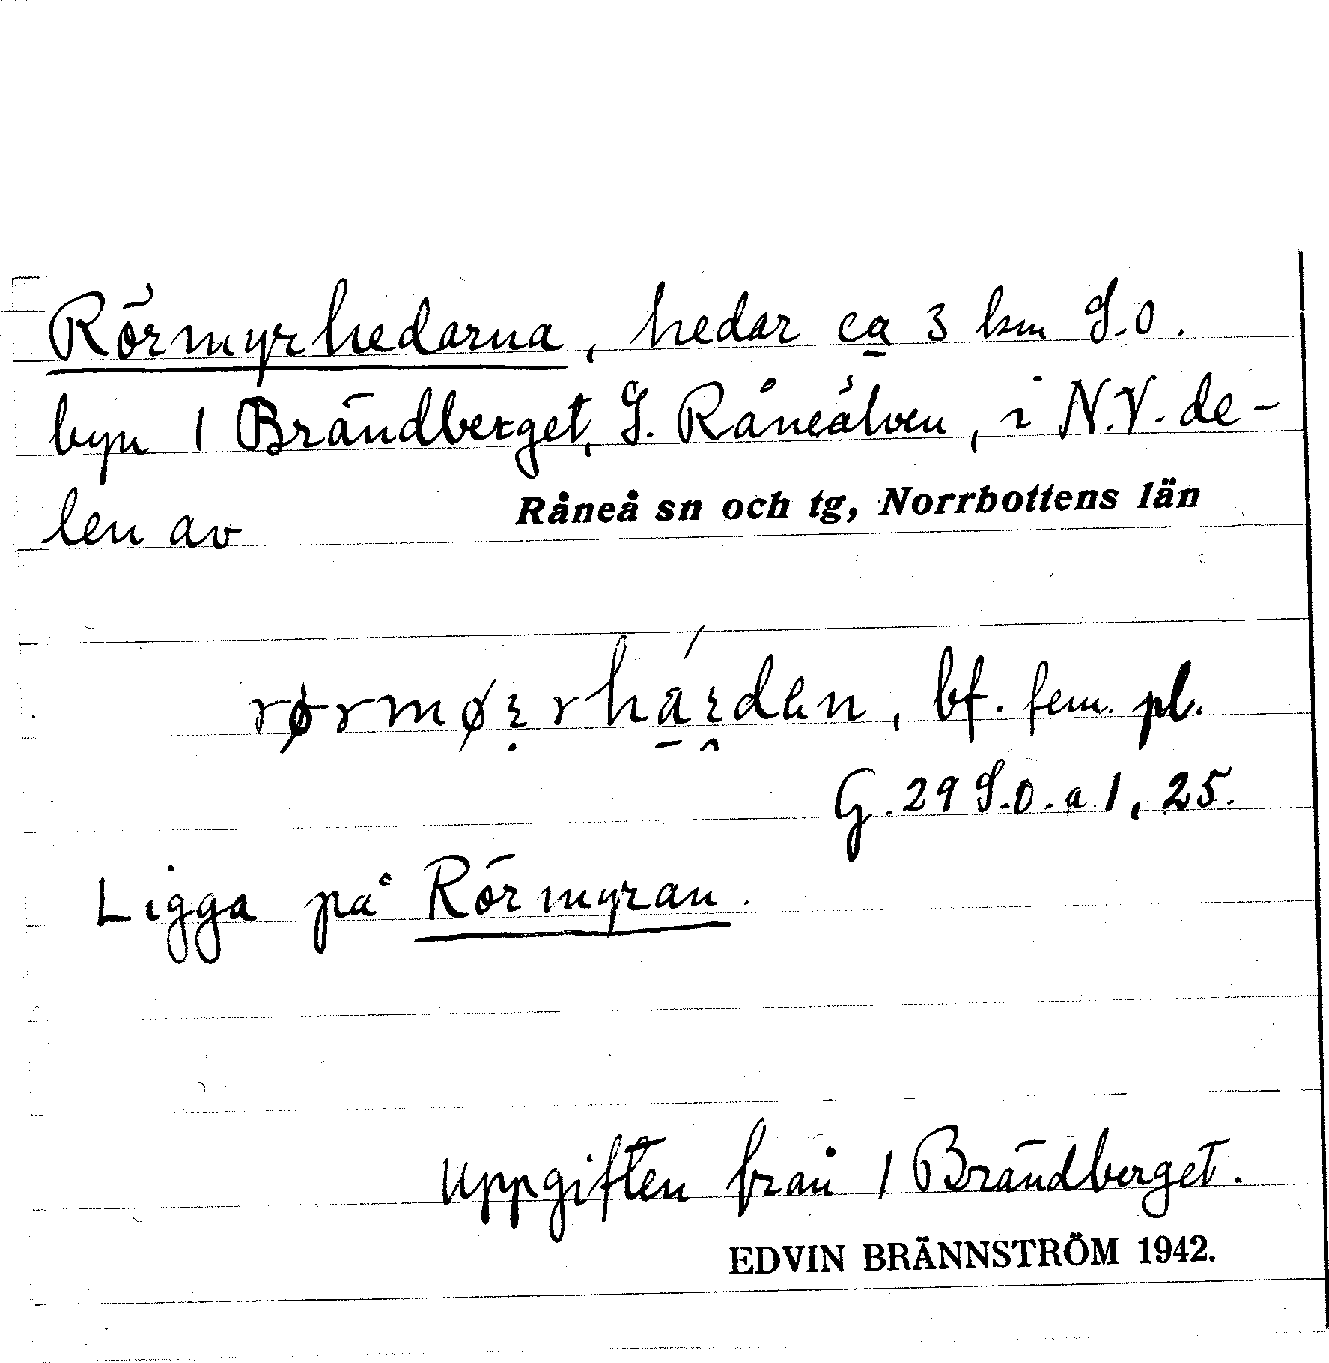 Rörmyrhedarna, hedar ca 3 km S.O.
byn 1 Brändberget, S. Råneälven, i N.V. de-
len av Råneå sn och tg, Norrbottens län
bf. fem. pl.
G. 29 S.O. a 1, 25.
Ligga på Rörmyran.
Uppgiften från 1 Brändberget.
EDVIN BRÄNNSTRÖM 1942.